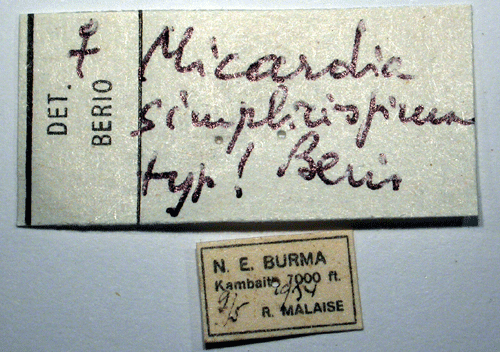 DET. ♀ BERIO
Micardia
simplicissima
typ! Berio
N. E. BURMA
Kambaiti 7000 ft.
9/5 1934
R. MALAISE